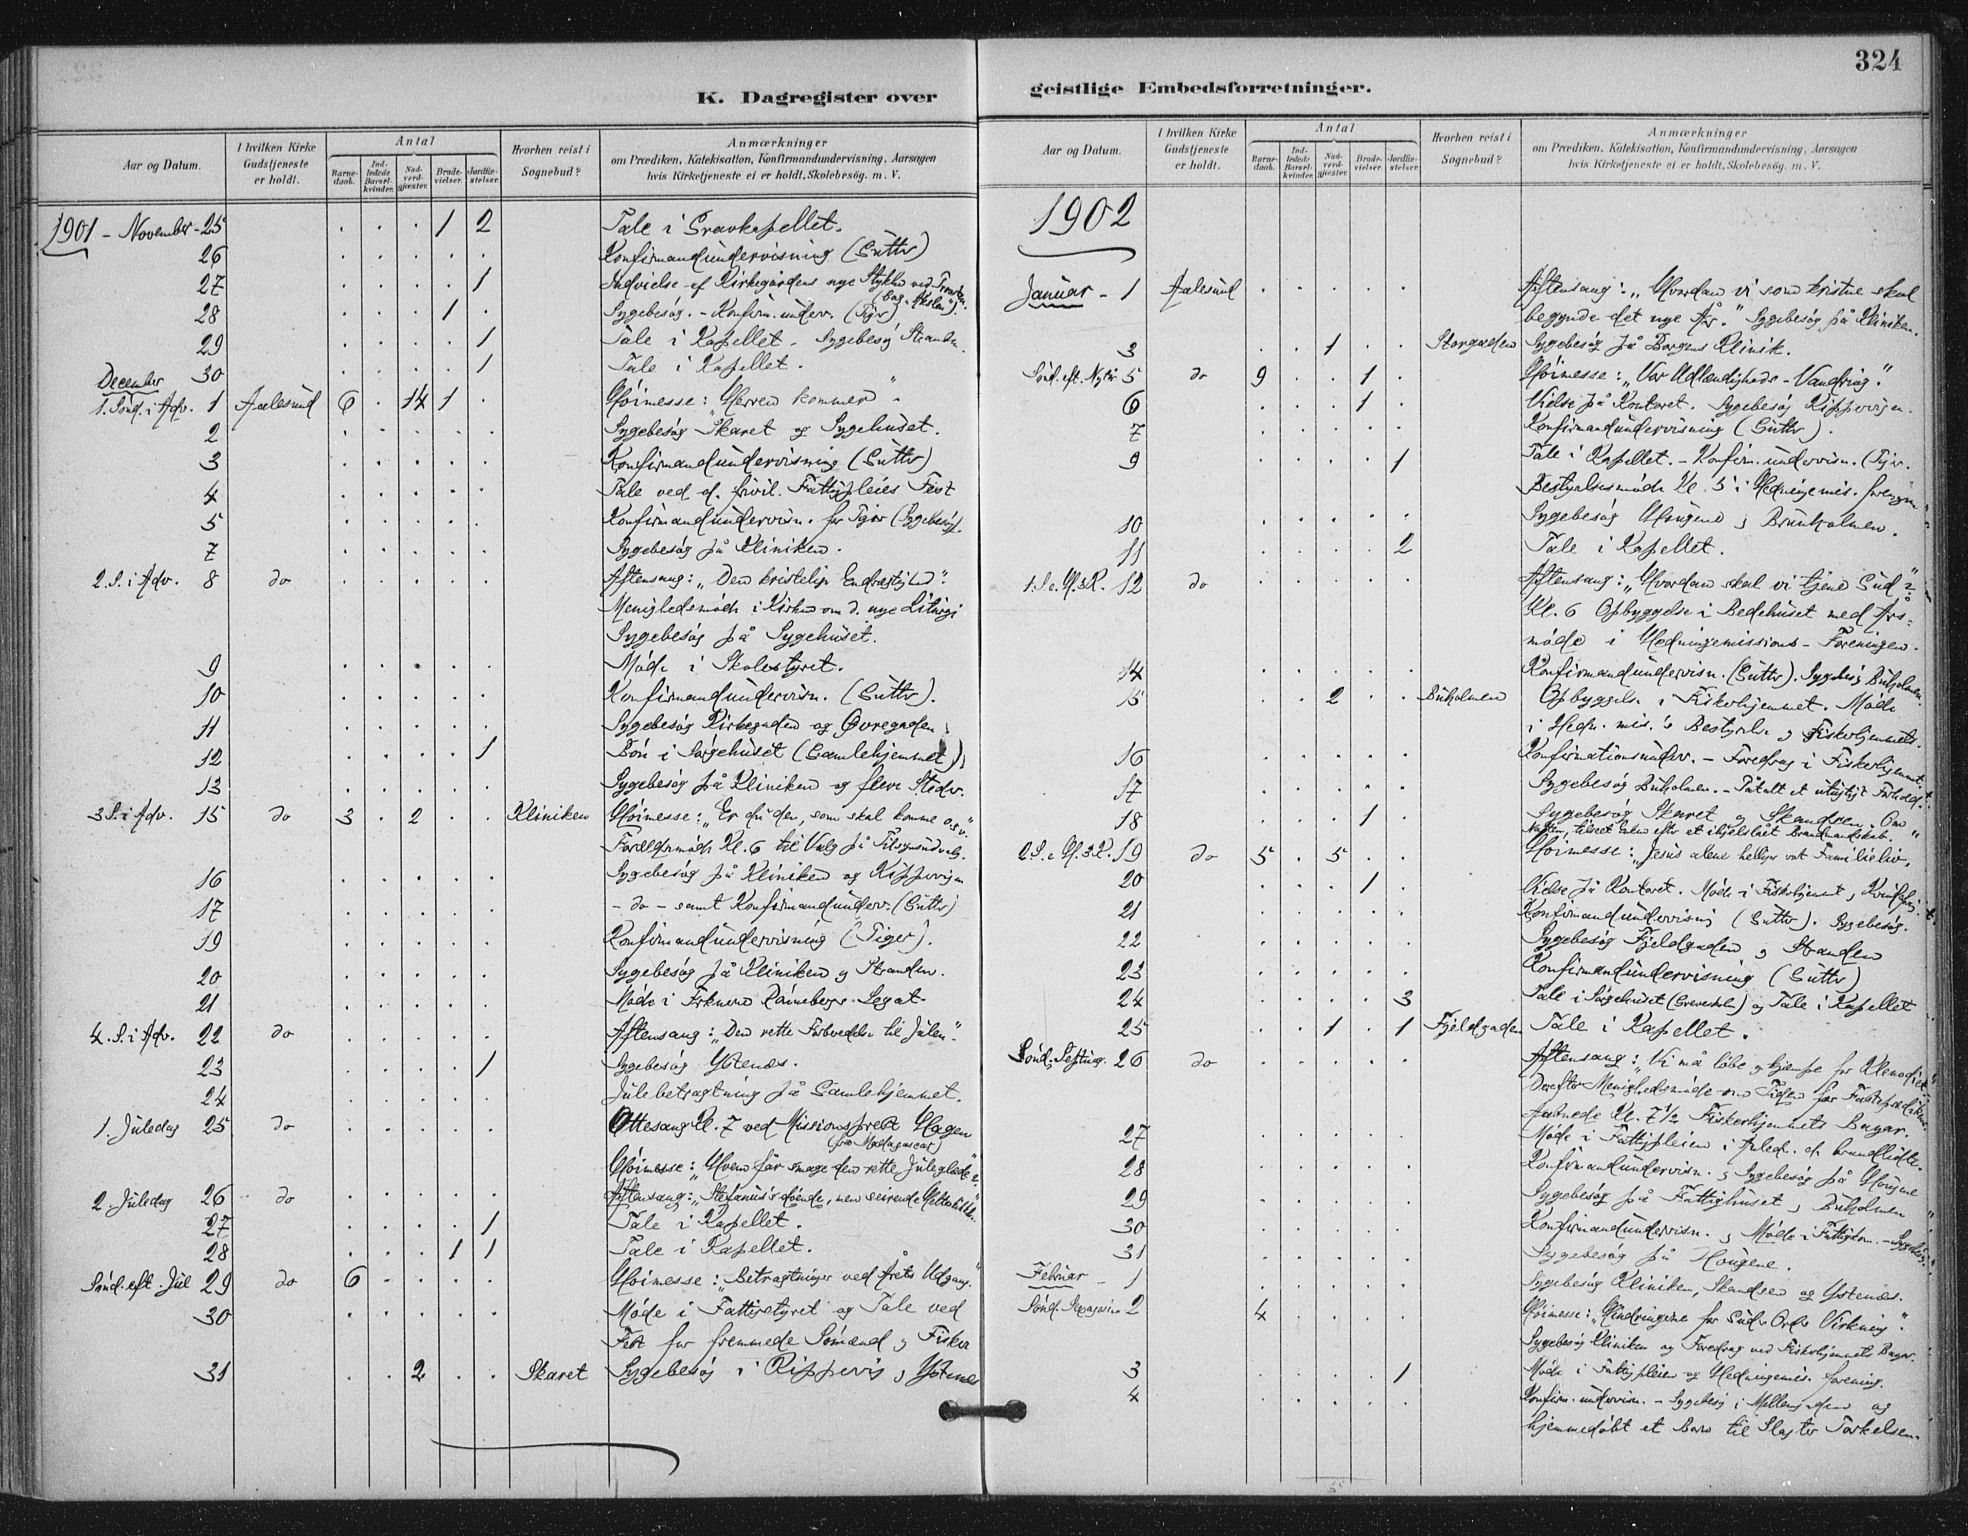 324
K. Dagregister over
geistlige Embedsforretninger.
Aar og Datum.
I hvilken Kirke Gudstjeneste er holdt.
Antal
Barnedaab.
Indledede Barselkvinder.
Nadverdgjæster.
Brudevielser.
Jordfæstelser.
Hvorhen reist i Sognebud?
Anmærkninger
om Prædiken, Katekisation, Konfirmandundervisning, Aarsagen
hvis Kirketjeneste ei er holdt, Skolebesøg. m. V.
1901 - November - 25 . . . 1 2 Tale i Gravkapellet.
26 . . . . . Konfirmandundervisning (Gutter)
27 . . . . 1 Indvielse af Kirkegårdens nye Stykke ved
28 . . . 1 . Sygebesøg. - Konfirm. underv. (Piger)
29 . . . . 1 Tale i Kapellet - Sygebesøg Stranden.
30 . . . . 1 Tale i Kapellet.
December
1. Sønd. i Adv. 1 Aalesund 6 . 14 1 . Høimesse: "Herren kommer"
2 . . . . . Sygebesøg Skaret og Sygehuset.
3 . . . . . Konfirmandundervisning (Gutter)
4 . . . . . Tale ved d. frivil. Fattigpleies Fest
5 . . . . . Konfirmandundervisn. for Piger (Sygebesøg).
7 . . . . . Sygebesøg på Kliniken.
2. S. i Adv. 8 do . . . . . Aftensang: "Den kristelige Endrægtighed".
Menighedsmøde i Kirken om d. nye Liturgi
Sygebesøg på Sygehuset.
9 . . . . . Møde i Skolestyret.
10 . . . . . Konfirmandundervisn. (Gutter).
11 . . . . . Sygebesøg Kirkegaden og Øvregaden
12 . . . . 1 Bøn i Sørgehuset (Gamlehjemmet)
13 . . . . . Sygebesøg på Kliniken og flere Steder.
3 S. i Adv. 15 do 3 . 2 . . Kliniken Høimesse: "Er du den, som skal komme osv."
Forældremøde Kl. 6 til Valg på Tilsynsudvalg.
16 . . . . . Sygebesøg på Kliniken og Kippervigen
17 . . . . . - do - samt Konfirmandunderv. (Gutter)
19 . . . . . Konfirmandundervisning (Piger).
20 . . . . . Sygebesøg på Kliniken og Stranden.
21 . . . . . Møde i Legat.
4. S. i Adv. 22 do . . . . . Aftensang: "Den rette Forberedelse til Julen".
23 . . . . 1 Sygebesøg Ystenæs.
24 . . . . . Julebetragtning på Gamlehjemmet.
1. Juledag 25 do . . . . . Ottesang Kl. 7 ved Missionsprest Hagen
(fra Madagascar)
Høimesse: "Hvem får smage den rette Juleglæde"?
2. Juledag 26 do . . . . . Aftensang: "Stefanus's døende, men seirende
27 . . . . 1 Tale i Kapellet.
28 . . . 1 1 Tale i Kapellet.
Sønd. eft. Jul 29 do 6 . . . . Høimesse: "Betragtninger ved Årets Udgang."
30 . . . . . Møde i Fattigstyret og Tale ved
Fest for fremmede Sømænd og Fiskere
31 . . 2 . . Skaret Sygebesøg i Kippervig og Ystenæs
Aar og Datum.
I hvilken Kirke Gudstjeneste er holdt.
Antal
Barnedaab.
Indledede Barselkvinder.
Nadverdgjæster.
Brudevielser.
Jordfæstelser.
Hvorhen reist i Sognebud?
Anmærkninger
om Prædiken, Katekisation, Konfirmandundervisning, Aarsagen
hvis Kirketjeneste ei er holdt, Skolebesøg. m. V.
1902
Januar - 1 Aalesund . . . . . Aftensang: "Hvordan vi som kristne skal
begynde det nye År." Sygebesøg på Kliniken.
3 . . 1 . . Storgaden Sygebesøg på Borgens Klinik.
Sønd. eft. Nytår 5 do 9 . . 1 . Høimesse: "Vor Udlændigheds-Vandring".
6 . . . 1 . Vielse på Kontoret. Sygebesøg Kippervigen.
7 . . . . . Konfirmandundervisning (Gutter).
9 . . . . 1 Tale i Kapellet. - Konfirm. undervisn. (Piger.
Bestyrelsesmøde Kl. 5 i Hedningemis. foreningen
10 . . . . . Sygebesøg Hougene og Buholmen.
11 . . . . 2 Tale i Kapellet.
1. S. e. H. 3 K. 12 do . . . . . Aftensang: "Hvordan skal vi tjene Gud"?
Kl. 6 Opbyggelse i Bedehuset med Års-
møde i Hedningemissions-Foreningen.
14 . . . . . Konfirmandundervisn. (Gutter). Sygebesøg Buholmen.
15 . . 2 . . Buholmen Opbyggelse i Fiskerhjemmet. Møde
i Hedn. mis.'s Bestyrelse og Fiskerhjemmets.
16 . . . . . Konfirmationsunderv. - Foredrag i Fiskerhjemmet.
17 . . . . . Sygebesøg Buholmen. - Påtalt et utugtigt Forhold.
18 . . . 1 . Sygebesøg Skaret og Skandsen. Om
Natten, tilset Enken efter et ihjelslået Brandmandskab
2. S. e. H. 3 K. 19 do 5 . 5 . . Høimesse: "Jesus alene helliger vort Familieliv."
20 . . . 1 . Vielse på Kontoret. Møde i Fiskerhjemmet
21 . . . . . Konfirmandundervisning (Gutter). Sygebesøg.
22 . . . . . Sygebesøg Fjeldgaden og Stranden
23 . . . . . Konfirmandundervisning (Gutter)
24 . . . . 3 Tale i Sørgehuset og Tale i Kapellet
25 . . 1 . 1 Fjeldgaden Tale i Kapellet.
Sønd. Septuag. 26 do . . . . . Aftensang: "Vi må løbe og kjæmpe for Klenodiet"
Derefter Menighedsmøde om
Aabnede Kl. 7 1/2 Fiskerhjemmets Bazar.
27 . . . . . Møde i Fattigpleien i Anled. af brandlidte.
28 . . . . . Konfirmandundervisn. og Sygebesøg på Hougene
29 . . . . . Sygebesøg på Fattighuset og Buholmen
30 . . . . . Konfirmandundervisn. og Møde i Fattigkom. - Sygebesøg.
31 . . . . . Sygebesøg på Hougene.
Februar - 1 . . . . . Sygebesøg Kliniken, Skandsen og Ystenæs.
Sønd. Sexagesima 2 4 . . . . Høimesse: "Hindringene for Guds Ords Virkning".
Sygebesøg Kliniken og Foredrag ved Fiskerhjemmets Bazar.
3 . . . . 1 Møde i Fattigpleien og Hedningemis. forening.
4 . . . . . Konfirm. undervisn. - Sygebesøg i Mellemgaden og
hjemmedøbt et Barn til Slagter Torkelsen.